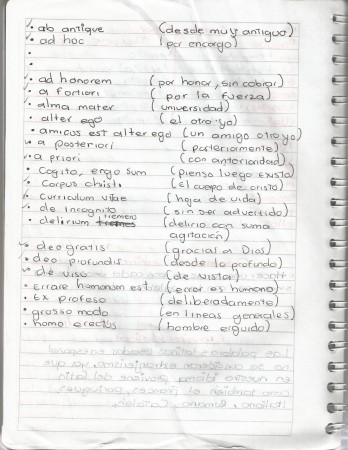 ab antique (desde muy antiguo)
ad hoc (por encargo)
ad honorem (por honor, sin cobrar)
a fortiori (por la fuerza)
alma mater (universidad)
alter ego (el otro yo)
amicus est alter ego (un amigo otro yo)
a posteriori (posteriormente)
a priori (con anterioridad)
Cogito, ergo sum (pienso luego existo)
Corpus christi (el cuerpo de cristo)
Curriculum vitae (hoja de vida)
de incognito (sin ser advertido)
delirium tremens (delirio con suma
agitación)
deo gratis (gracias a Dios)
deo profundis (desde lo profundo)
de viso (de vista)
Errare humanum est (error es humano)
Ex profeso (deliberadamente)
grosso modo (en lineas generales)
homo erectus (hombre erguido)